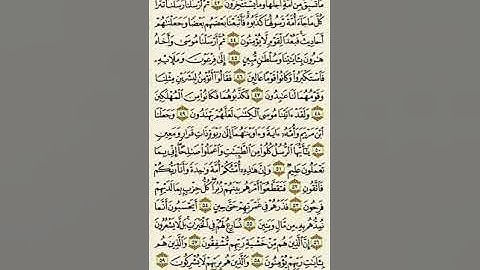 مَا تَسْبِقُ مِنْ أُمَّةٍ أَجَلَهَا وَمَا يَسْتَـْٔخِرُونَ ٤٣ ثُمَّ أَرْسَلْنَا رُسُلَنَا تَتْرَا
كُلَّ مَا جَآءَ أُمَّةً رَّسُولُهَا كَذَّبُوهُ فَأَتْبَعْنَا بَعْضَهُم بَعْضًا وَجَعَلْنَٰهُمْ
أَحَادِيثَ فَبُعْدًا لِّقَوْمٍ لَّا يُؤْمِنُونَ ٤٤ ثُمَّ أَرْسَلْنَا مُوسَىٰ وَأَخَاهُ
هَٰرُونَ بِـَٔايَٰتِنَا وَسُلْطَٰنٍ مُّبِينٍ ٤٥ إِلَىٰ فِرْعَوْنَ وَمَلَإِي۟هِۦ
فَٱسْتَكْبَرُوا۟ وَكَانُوا۟ قَوْمًا عَالِينَ ٤٦ فَقَالُوٓا۟ أَنُؤْمِنُ لِبَشَرَيْنِ مِثْلِنَا
وَقَوْمُهُمَا لَنَا عَٰبِدُونَ ٤٧ فَكَذَّبُوهُمَا فَكَانُوا۟ مِنَ ٱلْمُهْلَكِينَ
٤٨ وَلَقَدْ ءَاتَيْنَا مُوسَى ٱلْكِتَٰبَ لَعَلَّهُمْ يَهْتَدُونَ ٤٩ وَجَعَلْنَا
ٱبْنَ مَرْيَمَ وَأُمَّهُۥٓ ءَايَةً وَءَاوَيْنَٰهُمَآ إِلَىٰ رَبْوَةٍ ذَاتِ قَرَارٍ وَمَعِينٍ
٥٠ يَٰٓأَيُّهَا ٱلرُّسُلُ كُلُوا۟ مِنَ ٱلطَّيِّبَٰتِ وَٱعْمَلُوا۟ صَٰلِحًا إِنِّي بِمَا
تَعْمَلُونَ عَلِيمٌ ٥١ وَإِنَّ هَٰذِهِۦٓ أُمَّتُكُمْ أُمَّةً وَٰحِدَةً وَأَنَا۠ رَبُّكُمْ
فَٱتَّقُونِ ٥٢ فَتَقَطَّعُوٓا۟ أَمْرَهُم بَيْنَهُمْ زُبُرًا كُلُّ حِزْبٍۭ بِمَا لَدَيْهِمْ
فَرِحُونَ ٥٣ فَذَرْهُمْ فِي غَمْرَتِهِمْ حَتَّىٰ حِينٍ ٥٤ أَيَحْسَبُونَ أَنَّمَا
نُمِدُّهُم بِهِۦ مِن مَّالٍ وَبَنِينَ ٥٥ نُسَارِعُ لَهُمْ فِي ٱلْخَيْرَٰتِ بَل لَّا يَشْعُرُونَ
٥٦ إِنَّ ٱلَّذِينَ هُم مِّنْ خَشْيَةِ رَبِّهِم مُّشْفِقُونَ ٥٧ وَٱلَّذِينَ هُم
بِـَٔايَٰتِ رَبِّهِمْ يُؤْمِنُونَ ٥٨ وَٱلَّذِينَ هُم بِرَبِّهِمْ لَا يُشْرِكُونَ ٥٩